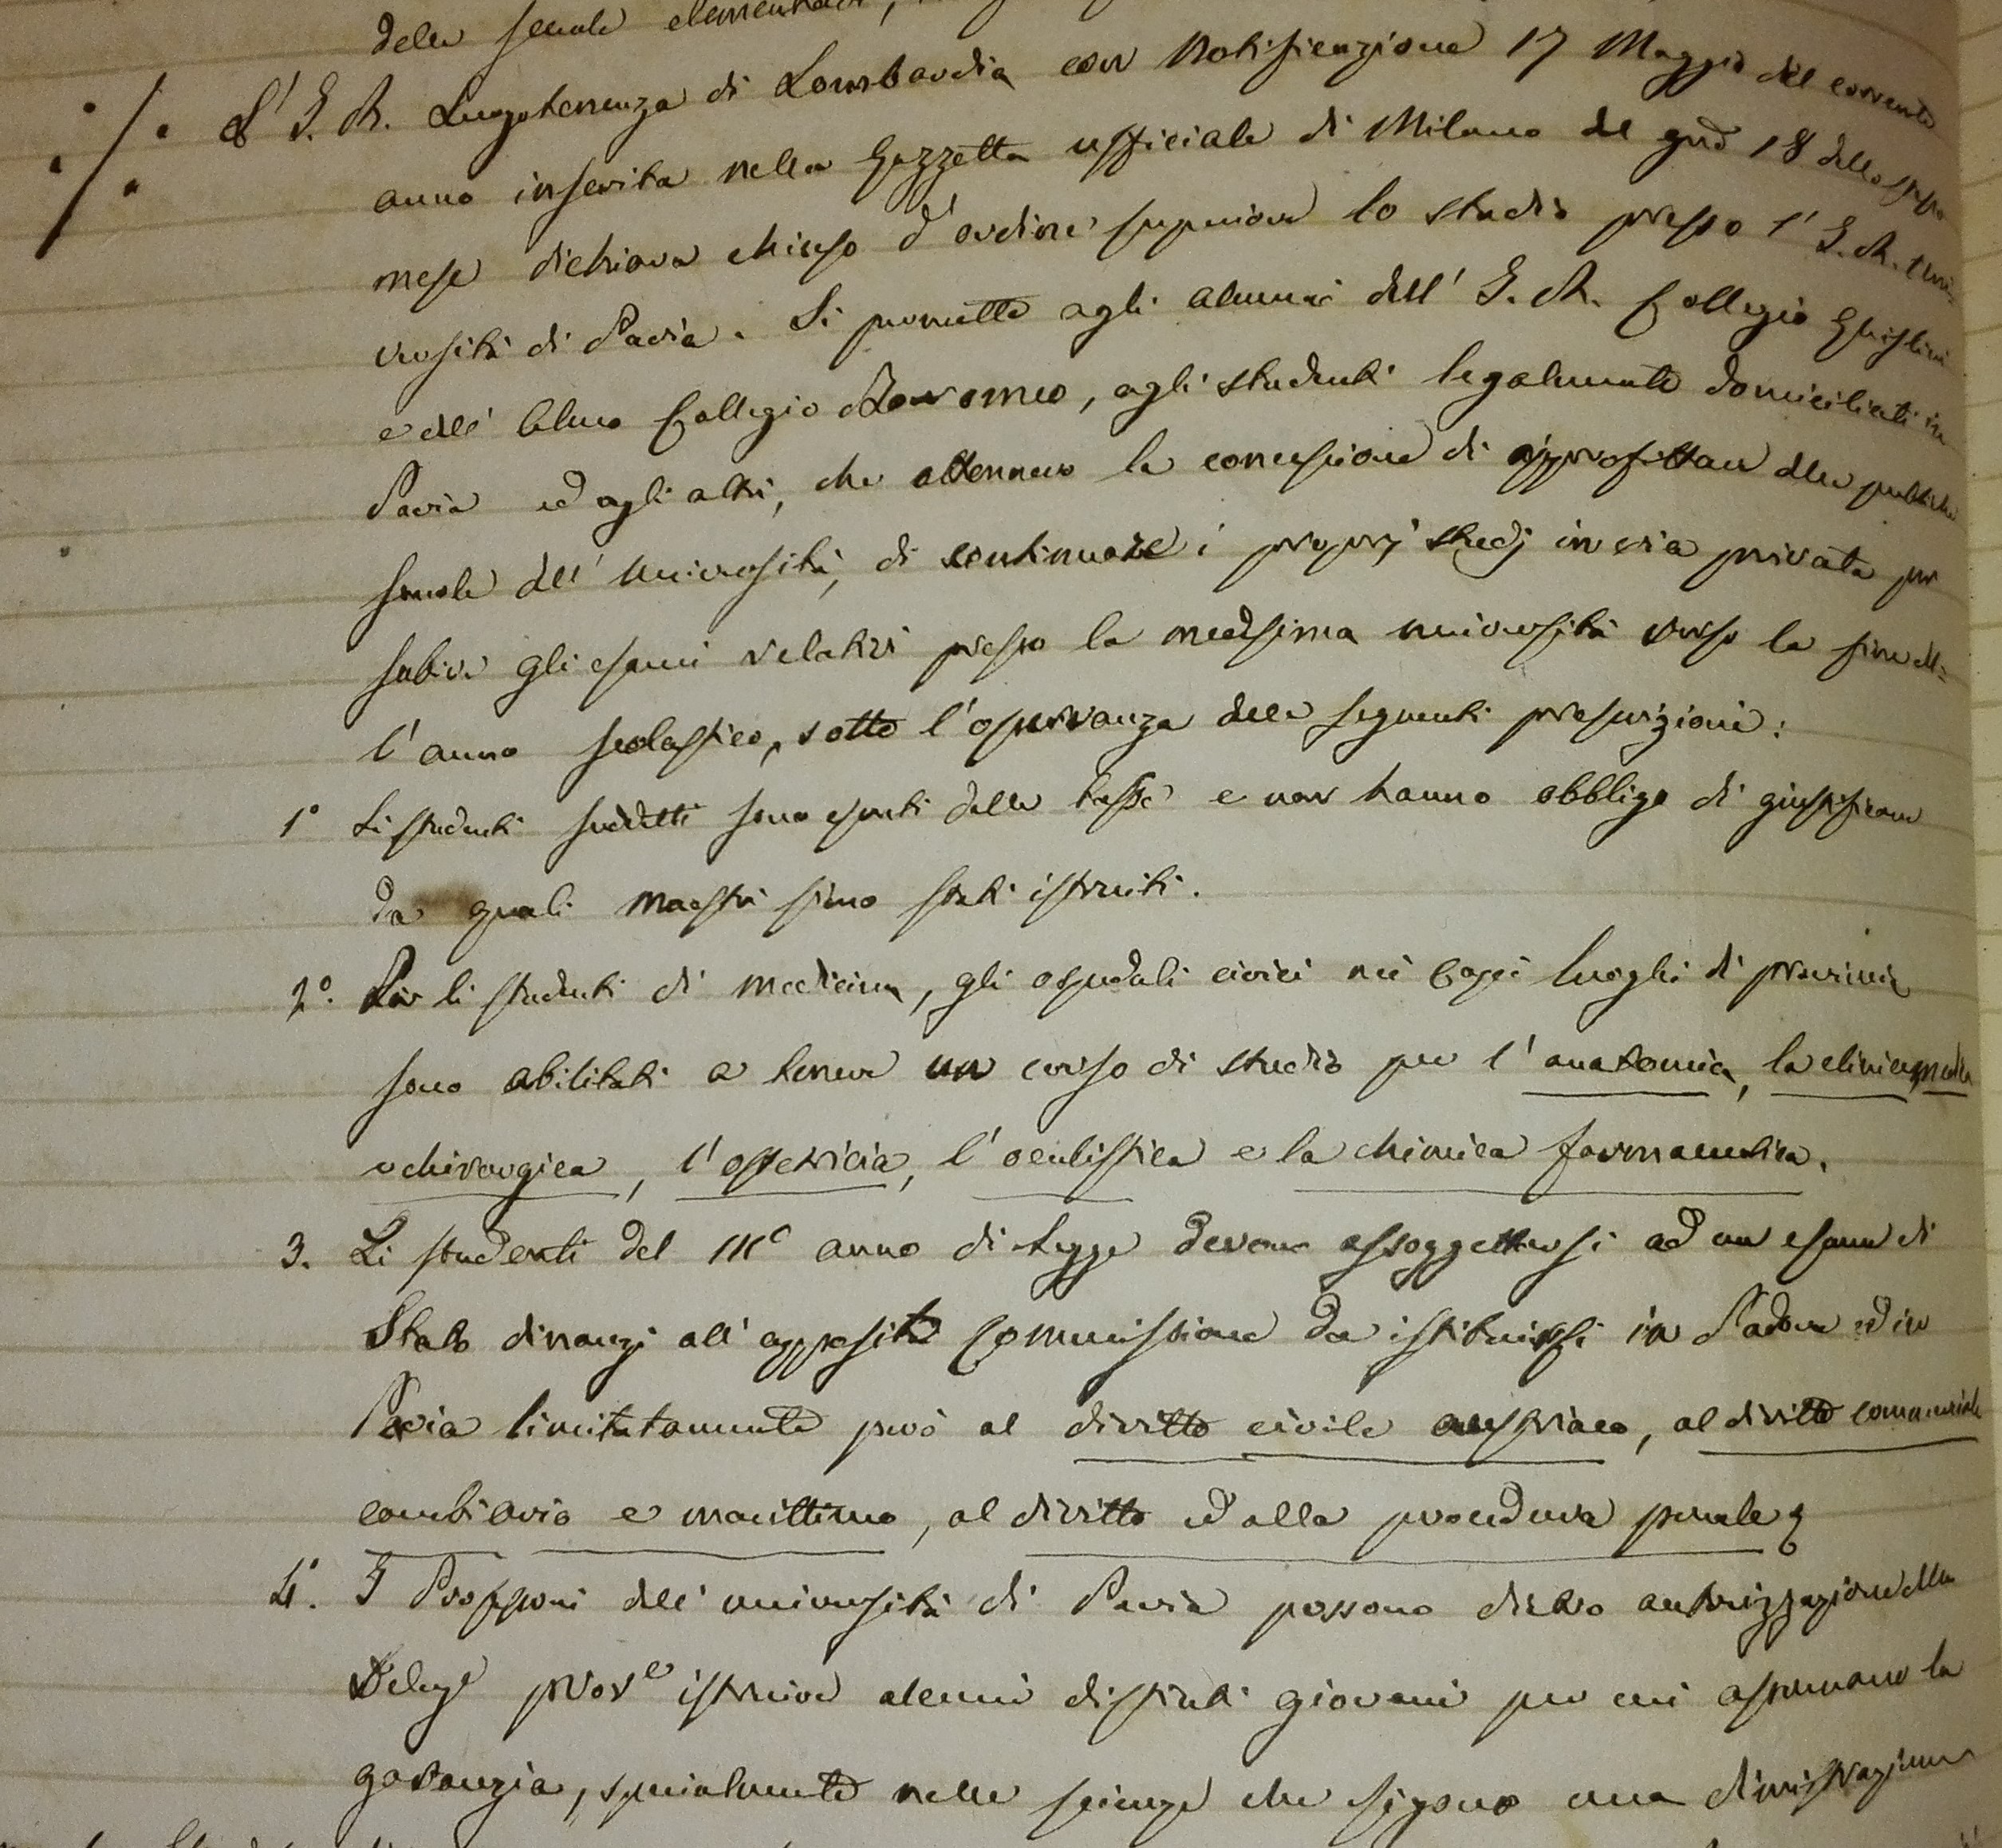 delle scuole elementari,
L' I. R. Luogotenenza di Lombardia con Notificazione 17 Maggio del corrente
anno inserita nella Gazzetta ufficiale di Milano del giorº 18 dello stesso
mese dichiara chiuso d'ordine superiore lo studio presso l' I. R. Uni=
versità di Pavia. Si promette agli alunni dell' I. R. Collegio Ghislieri
e dell' Almo Collegio Borromeo, agli studenti legalmente domiciliati in
Pavia ed agli altri, che ottennero la concessione di approfittare delle pubbliche
scuole dell' Università, di continuare i proprj studj in via privata per
subire gli esami relativi presso la medesima università verso la fine del=
l'anno scolastico, sotto l'osservanza delle seguenti prescrizioni:
1º Li studenti suddetti sono esenti dalle tasse e non hanno obbligo di giustificare
da quali maestri sieno stati istruiti.
2º. Per li studenti di medicina, gli ospedali civici nei Capi luoghi di provincia
sono abilitati a tenere un corso di studio per l'anatomia, la clinica medica
e chirurgica, l'ostetricia, l'oculistica e la chimica farmaceutica.
3. Li studenti del IIIº anno di Legge devono assoggettarsi ad un esame di
Stato dinanzi all' apposita Commissione da istituirsi in Padova ed in
Pavia limitatamente però al diritto civile austriaco, al diritto commerciale
cambiario e marittimo, al diritto ed alla procedura penale;
4º. I Professori dell' università di Pavia possono dietro autorizzazione della
Delegᵉ provᵉ istruire alcuni distinti giovani per cui assumano la
garanzia, specialmente nelle scienze che esigono una dimostrazione